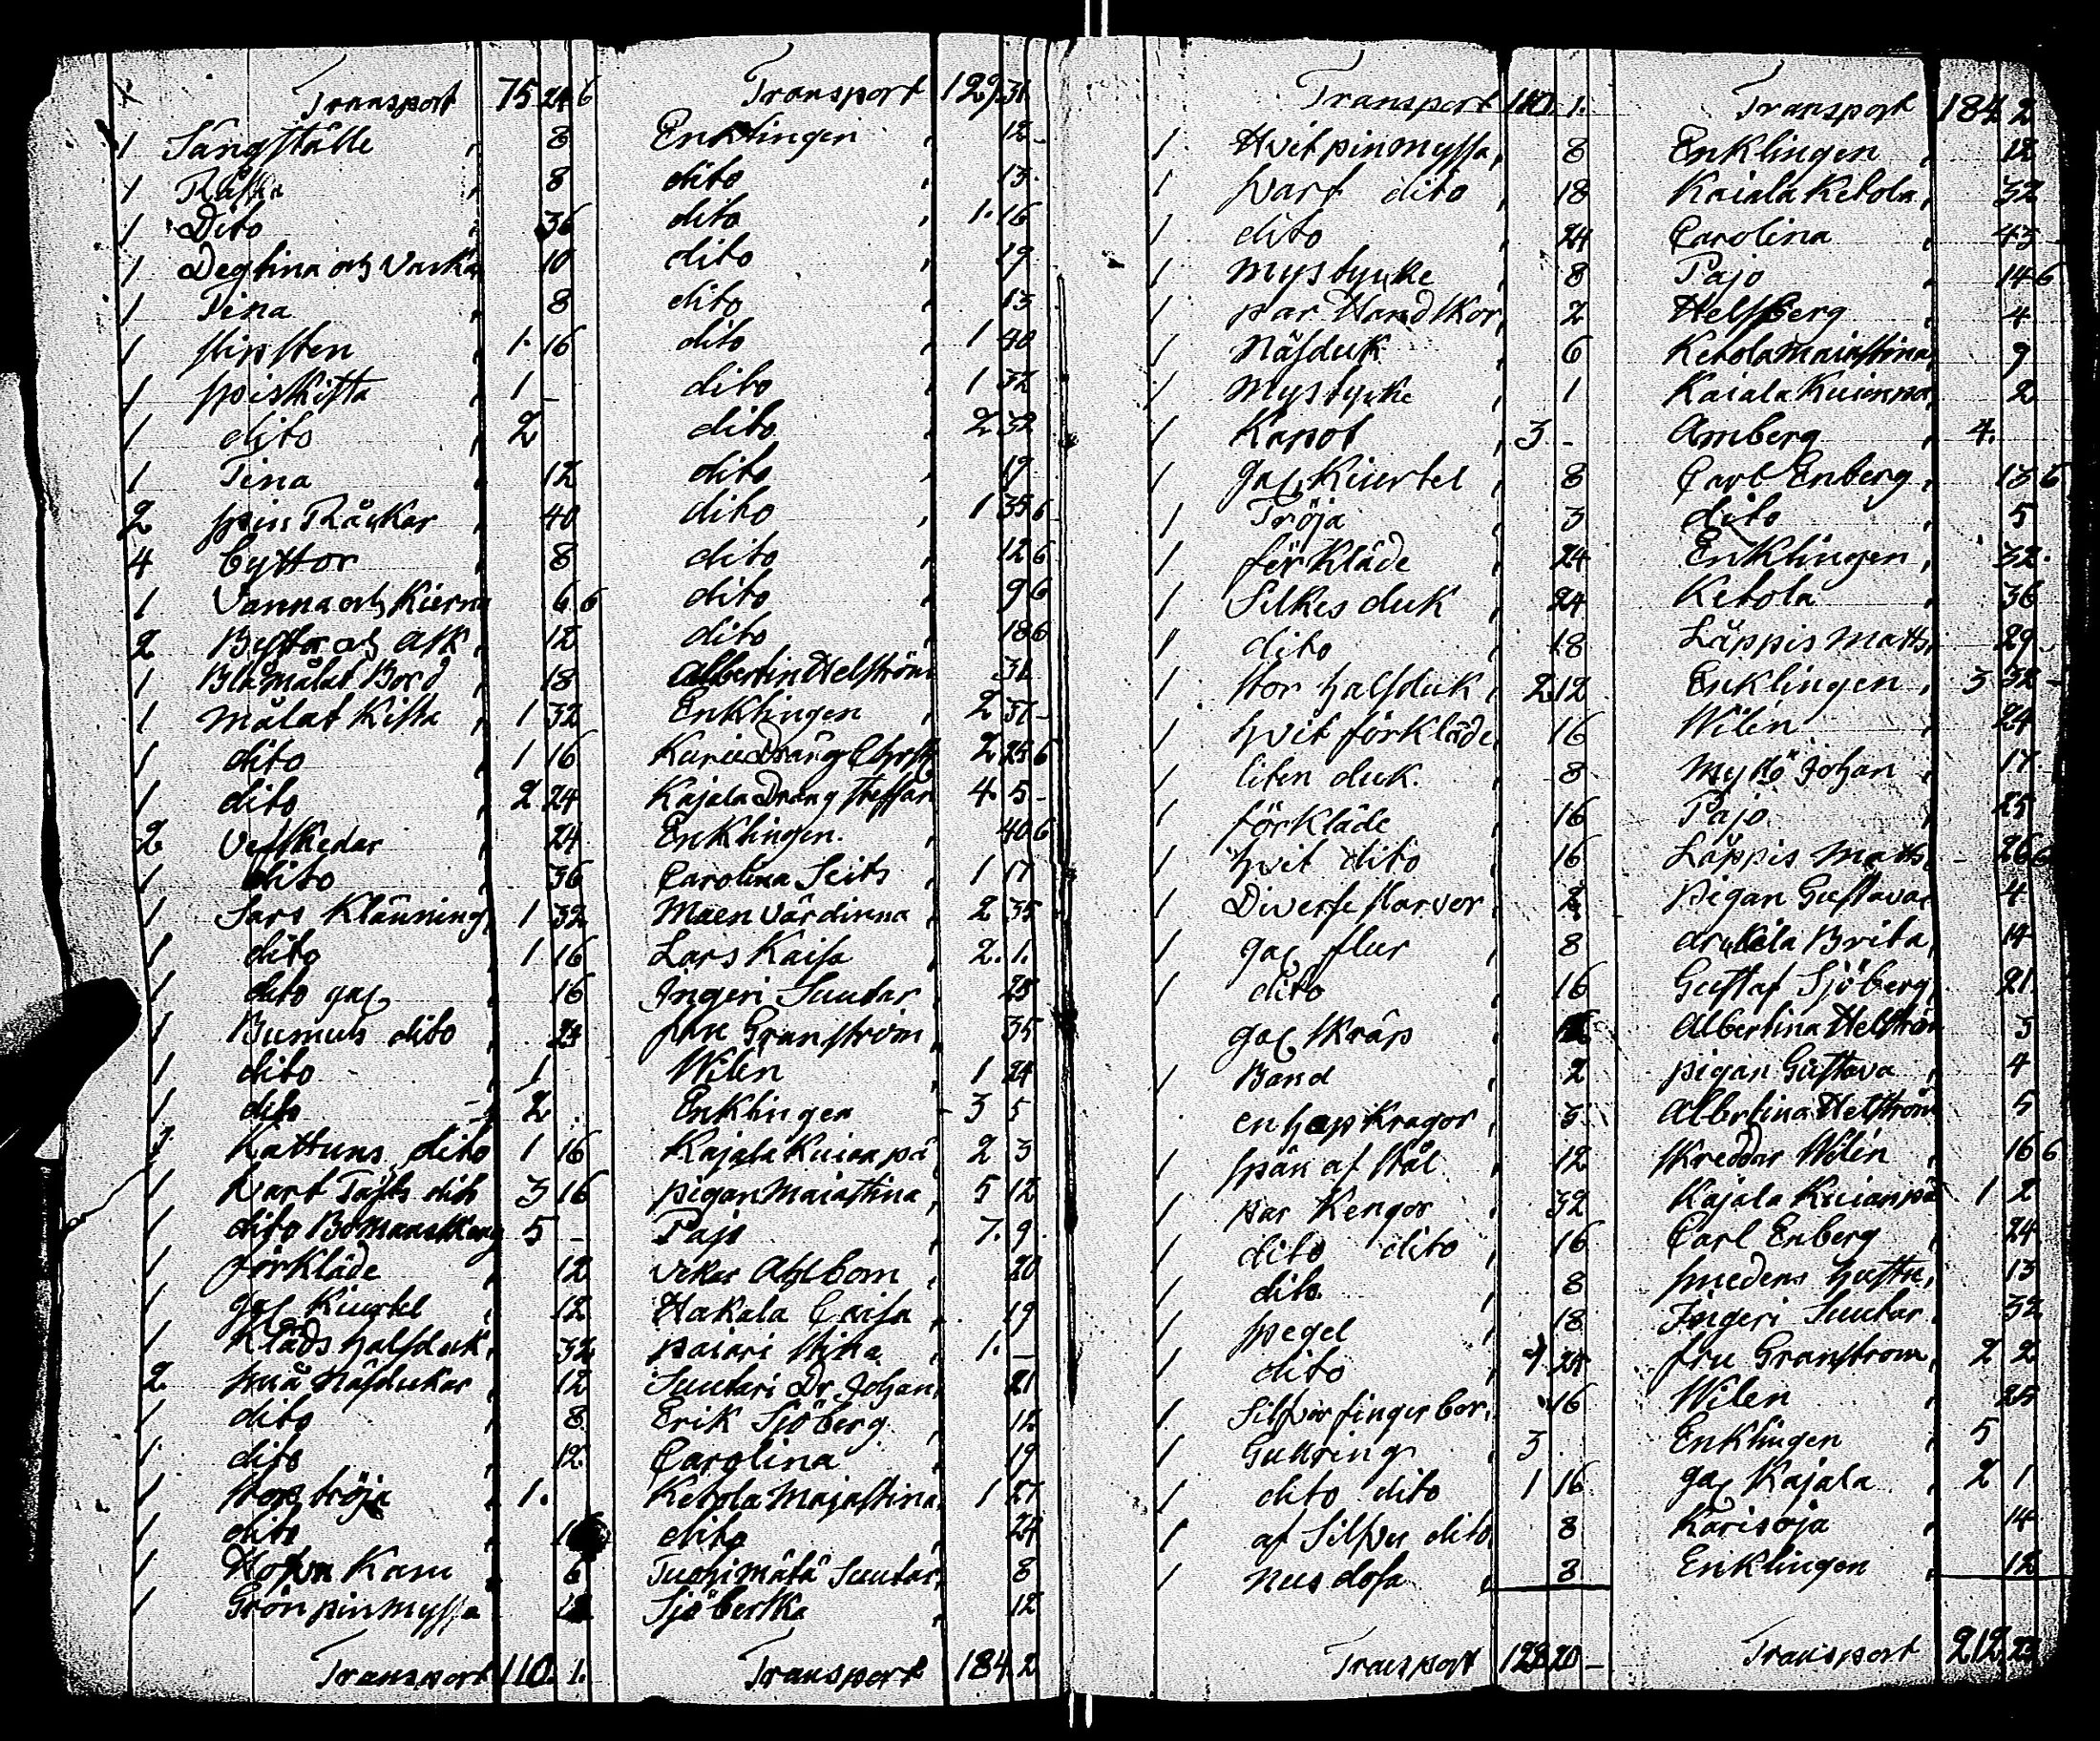 Transport 75 24 6 Transport 129. 31.
1 Sängställe 8 Enklingen 12 -
1 8 dito 13.
1 Dito 36 dito 1. 16
1 Degtina och 10 dito 19
1 Tina 8 dito 13
1 slipsten 1. 16 dito 1 40
1 spiskista 1 - dito 1 32
1 dito 2 dito 2 32
1 Tina 12 dito 19
2 spin Råckar 40 dito 1 35 6
4 byttor 8 dito 12 6
1 Vanna och Kierna 6 6 dito 9 6
2 Bytta och Ask 12 dito 18 6
1 Blåmålat Bord 18 Albertin Helström 31
1 målat Kista 1 32 Enklingen 2 37 -
1 dito 1 16 Dräng 2 25 6
1 dito 2 24 Kajala Dräng Steffan 4. 5 -
2 Vefskedar 24 Enklingen. 40 6
1 dito 36 Carolina Seits 1 17
1 Sars Klänning 1 32 Maen värdinna 2 35
1 dito 1 16 Lars Kaisa 2. 1.
1 dito gal 16 Ingeri Suutar 25
1 Bumuls dito 24 fru Granström 35
1 dito 1 Wilén 1 24
1 dito 2 . Enklingen 3 5
1 Kattuns dito 1 16 Kajala Kuianpä 2 3
1 svart Tafts dito 3 16 pigan Maiastina 5 12
1 dito 5 - Pajo 7. 9.
1 förkläde 12 Ahlbom 20
1 gal Kiurtel 12 Hakala Caisa 19
1 Kläds halsduk 32 paiari Stina 1. -
2 små Näsdukar 12 Suutari Dr Johan 21
1 dito 8 Erik Sjöberg 12
1 dito 12 Carolina 19
1 tröja 1. Ketola Majastina 1 27
1 dito dito 24
1 Kam 6 Tuohimätä Suutar 8
1 Grön pinmyssa Sjöbertka 12
Transport 110. 1. Transport 184. 2
Transport 110. 1. Transport 184 2
1 Hvit pinmyssa 8 Enklingen 12
1 svart dito 18 Kaiala Ketola 32
1 dito 24 Carolina 43
1 mystycke 8 Pajo 14 6
1 par Handskor 2 Helsberg 4
1 Näsduk 6 Ketola Maiastina 9
1 mystycke 1 Kaiala Kuianpä 2
1 Kapot 3 - Amberg 4.
1 gal Kiurtel 8 Carl Enberg 13 6
1 Tröja 3 dito 5
1 förkläde 24 Enklingen 32.
1 Silkes duk 24 Ketola 36
1 dito 18 Läppis Matts 29
1 stor halsduk 2 12 Enklingen 3 32 -
1 hvit förkläde 16 Wilén 24
1 liten duk 8 Johan 17
1 förkläde 16 Pajo 25
1 hvit dito 16 Läppis Matts - 26 6
1 Diverse starvor 2 pigan Gustava 4
1 gal flur 8 Brita 14
1 dito 16 Gustaf Sjöberg 21.
1 gal skräp Albertina Helström 3
1 Band 2 pigan Gustava 4
en hop Kragor 3 Albertina Helström 5
1 spän af stål 12 skreddar Wilén 16 6
1 par Kengor 32 Kajala Kuianpä 1 2
1 dito dito 16 Carl Enberg 24
1 dito 8 smedens hustru 13
1 spegel 18 Ingeri Suutar 32
1 dito 24 fru Granstrom 2 2
1 Silfver fingerbor 16 Wilen 25
1 Gullring 3 . Enklingen 5
1 dito dito 1 16 gal Kajala 2 1
1 af Silfver dito 8 Karisoja 14
1 nusdosa 8 Enklingen 12
Transport 128 20 - Transport 212. 23